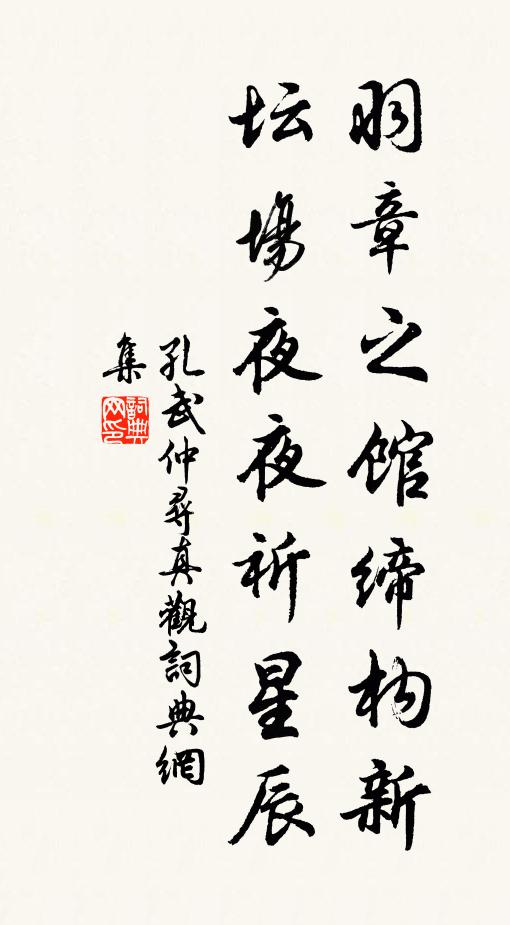 羽章之館缔构新
坛場夜夜祈星辰
孔武仲尋真觀詞典網
集
詞典網印